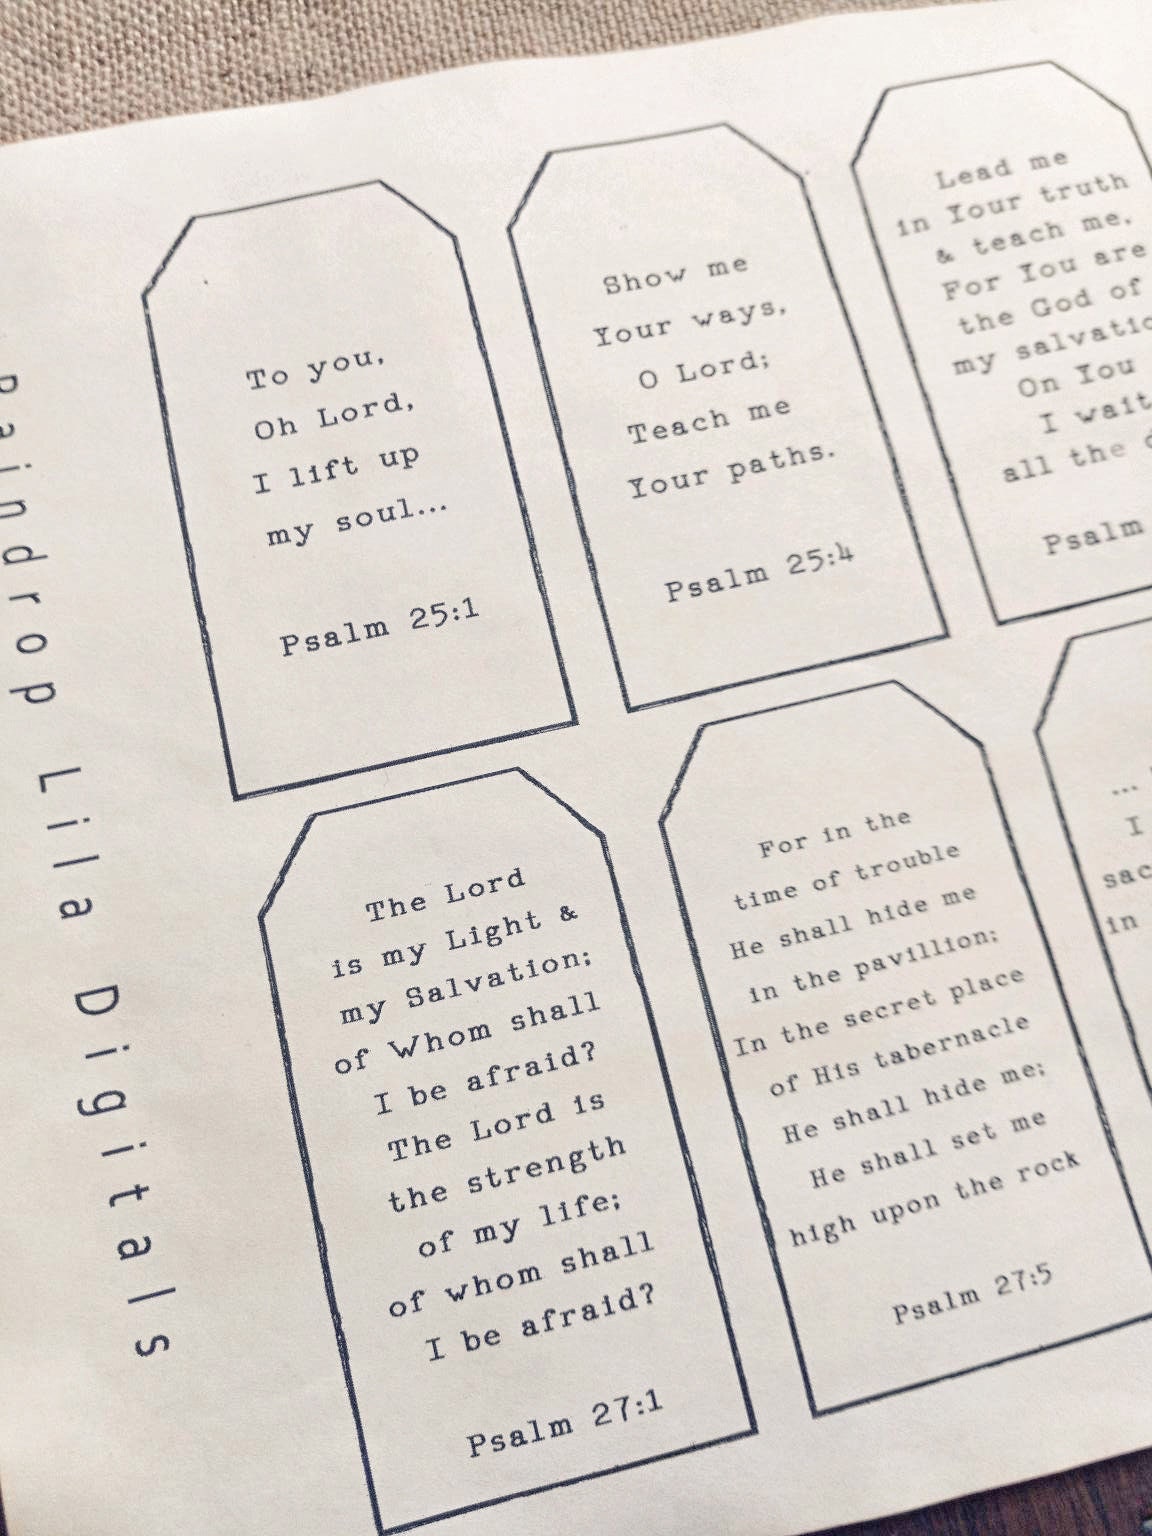 Raindrop Lila Digitals
To you,
Oh Lord,
I lift up
my soul...
Psalm 25:1
Show me
Your ways,
O Lord;
Teach me
Your paths.
Psalm 25:4
Lead me
in Your truth
& teach me,
For You are
the God of
my
On You
I wait
all the
Psalm
The Lord
is my Light &
my Salvation;
of Whom shall
I be afraid?
The Lord is
the strength
of my life;
of whom shall
I be afraid?
Psalm 27:1
For in the
time of trouble
He shall hide me
in the pavillion;
In the secret place
of His tabernacle
He shall hide me;
He shall set me
high upon the rock
Psalm 27:5
...
I
in